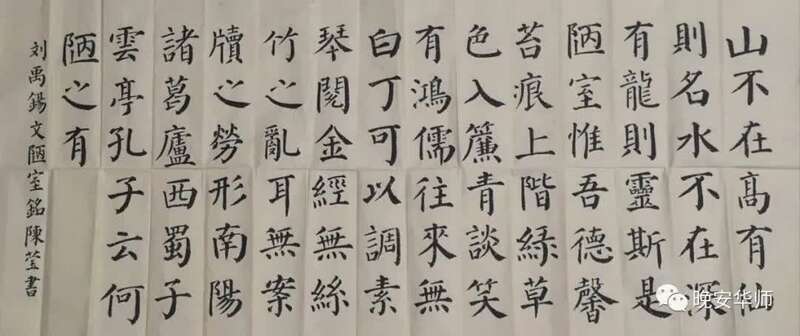 山不在高有仙
則名水不在深
有龍則靈斯是
陋室惟吾德馨
苔痕上階綠草
色入簾青談笑
有鴻儒往來無
白丁可以調素
琴閱金經無絲
竹之亂耳無案
牘之勞形南陽
諸葛廬西蜀子
雲亭孔子云何
陋之有
刘禹錫文陋室銘陳莹書
晚安华师